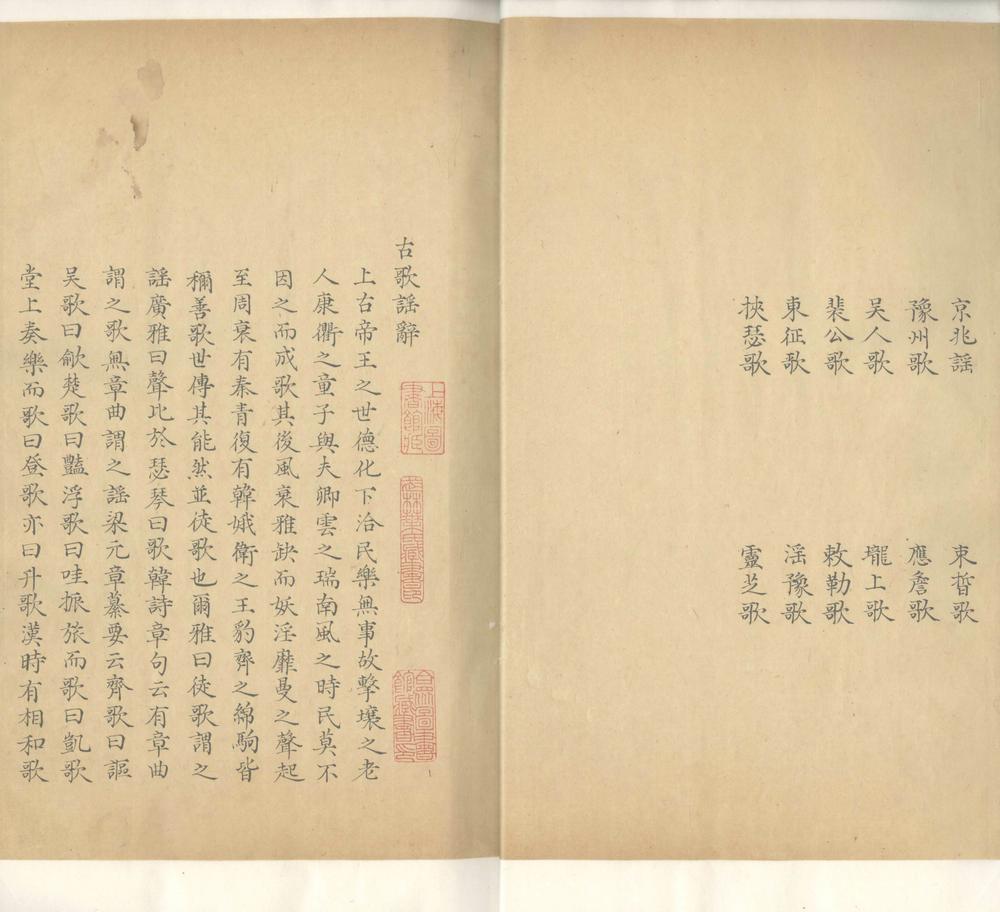 京兆謡 束晳歌
豫州歌 應詹歌
吴人歌 壠上歌
裴公歌 敕勒歌
東征歌 滛豫歌
挾瑟歌 靈芝歌
古歌謡辭
上古帝王之世德化下洽民樂無事故擊壤之老
人康衢之童子與夫卿雲之瑞南風之時民莫不
因之而成歌其後風衰雅缺而妖淫靡曼之聲起
至周衰有秦青復有韓娥衛之王豹齊之綿駒皆
稱善歌世傳其能然並徒歌也爾雅曰徒歌謂之
謡廣雅曰聲比於瑟琴曰歌韓詩章句云有章曲
謂之歌無章曲謂之謡梁元章纂要云齊歌曰謳
吴歌曰歈楚歌曰豔浮歌曰哇振旅而歌曰凱歌
堂上奏樂而歌曰登歌亦曰升歌漢時有相和歌
上海圖
書館藏